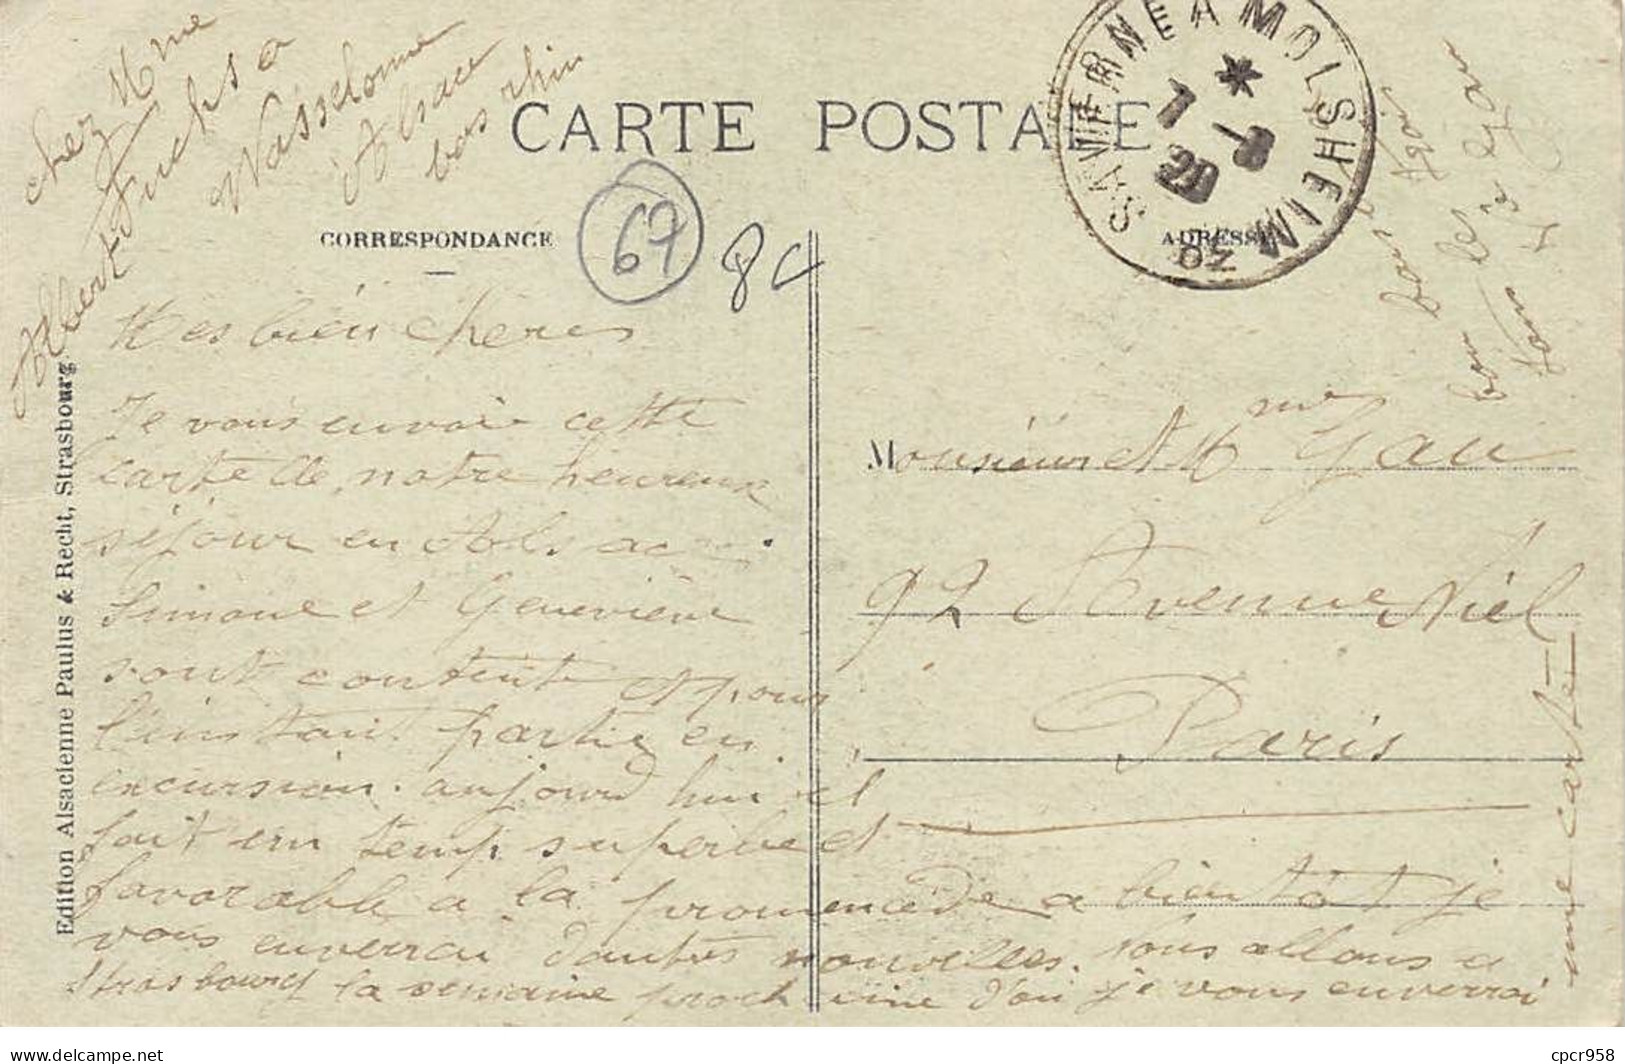 chez Mme
Fuchs a
Wasselonne
Alsace
bas rhin
Albert
CARTE POSTALE
SAVERNE A MOLSHEIM
7 -8
29
CORRESPONDANCE
ADRESSE
67
8c
Mes bien cheres
Je vous envoie cette
carte de notre heureux
séjour en Alsac
Simone et Geneviève
sont contente et pour
l'instant partie en
excursion. aujourd hui il
fait un temp superbe et
favorable a la promenade a bientôt je
vous enverrai d'autres nouvelles. Nous allons a
Strasbourg la semaine prochaine d'ou je vous enverrai
une carte
Monsieur et Mme Gau
92 Avenue Niel
Paris
bon
les
Edition Alsacienne Paulus & Recht, Strasbourg
cpcr958